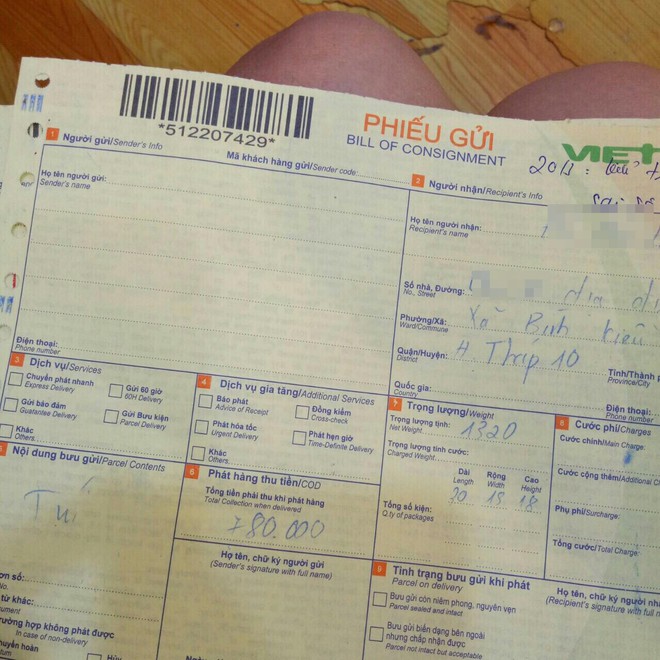 *512207429*
PHIẾU GỬI
BILL OF CONSIGNMENT
VIET
2011:
1 Người gửi/Sender's Info
Mã khách hàng gửi/Sender code:
Họ tên người gửi:
Sender's name
Điện thoại:
Phone number
2 Người nhận/Recipient's Info
Họ tên người nhận:
Recipient's name
Số nhà, Đường:
No., Street
Phường/Xã: Xã Bình Kiều
Ward/Commune
Quận/Huyện: H Tháp 10
District
Tỉnh/Thành
Province/City
Quốc gia:
Country
Điện thoại:
Phone number
3 Dịch vụ/Services
Chuyển phát nhanh
Express Delivery
Gửi 60 giờ
60H Delivery
Gửi bảo đảm
Guatantee Delivery
Gửi Bưu kiện
Parcel Delivery
Khác
Others
4 Dịch vụ gia tăng/Additional Services
Báo phát
Advice of Receipt
Đồng kiểm
Cross-check
Phát hỏa tốc
Urgent Delivery
Phát hẹn giờ
Time-Definite Delivery
Khác
Others
Nội dung bưu gửi/Parcel Contents
6 Phát hàng thu tiền/COD
Tổng tiền phải thu khi phát hàng
Total Collection when delivered
780.000
Họ tên, chữ ký người gửi
(Sender's signature with full name)
7 Trọng lượng/Weight
Trọng lượng tịnh: 1320
Net Weight
Trọng lượng tính cước:
Charged Weight
Dài Rộng Cao
Length Width Height
Tổng số kiện: 20 18 18
Q.ty of packages
8 Cước phí/Charges
Cước chính/Main Charge:
Cước cộng thêm/Additional
Phụ phí/Surcharge:
Tổng cước/Total Charge:
9 Tình trạng bưu gửi khi phát
Parcel on delivery
Bưu gửi còn niêm phong, nguyên vẹn
Parcel sealed and intact
Bưu gửi biến dạng bên ngoài
nhưng chấp nhận được
Parcel not intact but acceptable
Họ tên, chữ ký người
(Recipient's signature with full
ơn số:
No.
từ khác:
ument
rường hợp không phát được
In case of non-delivery
huyển hoàn
Hủy
Ngày